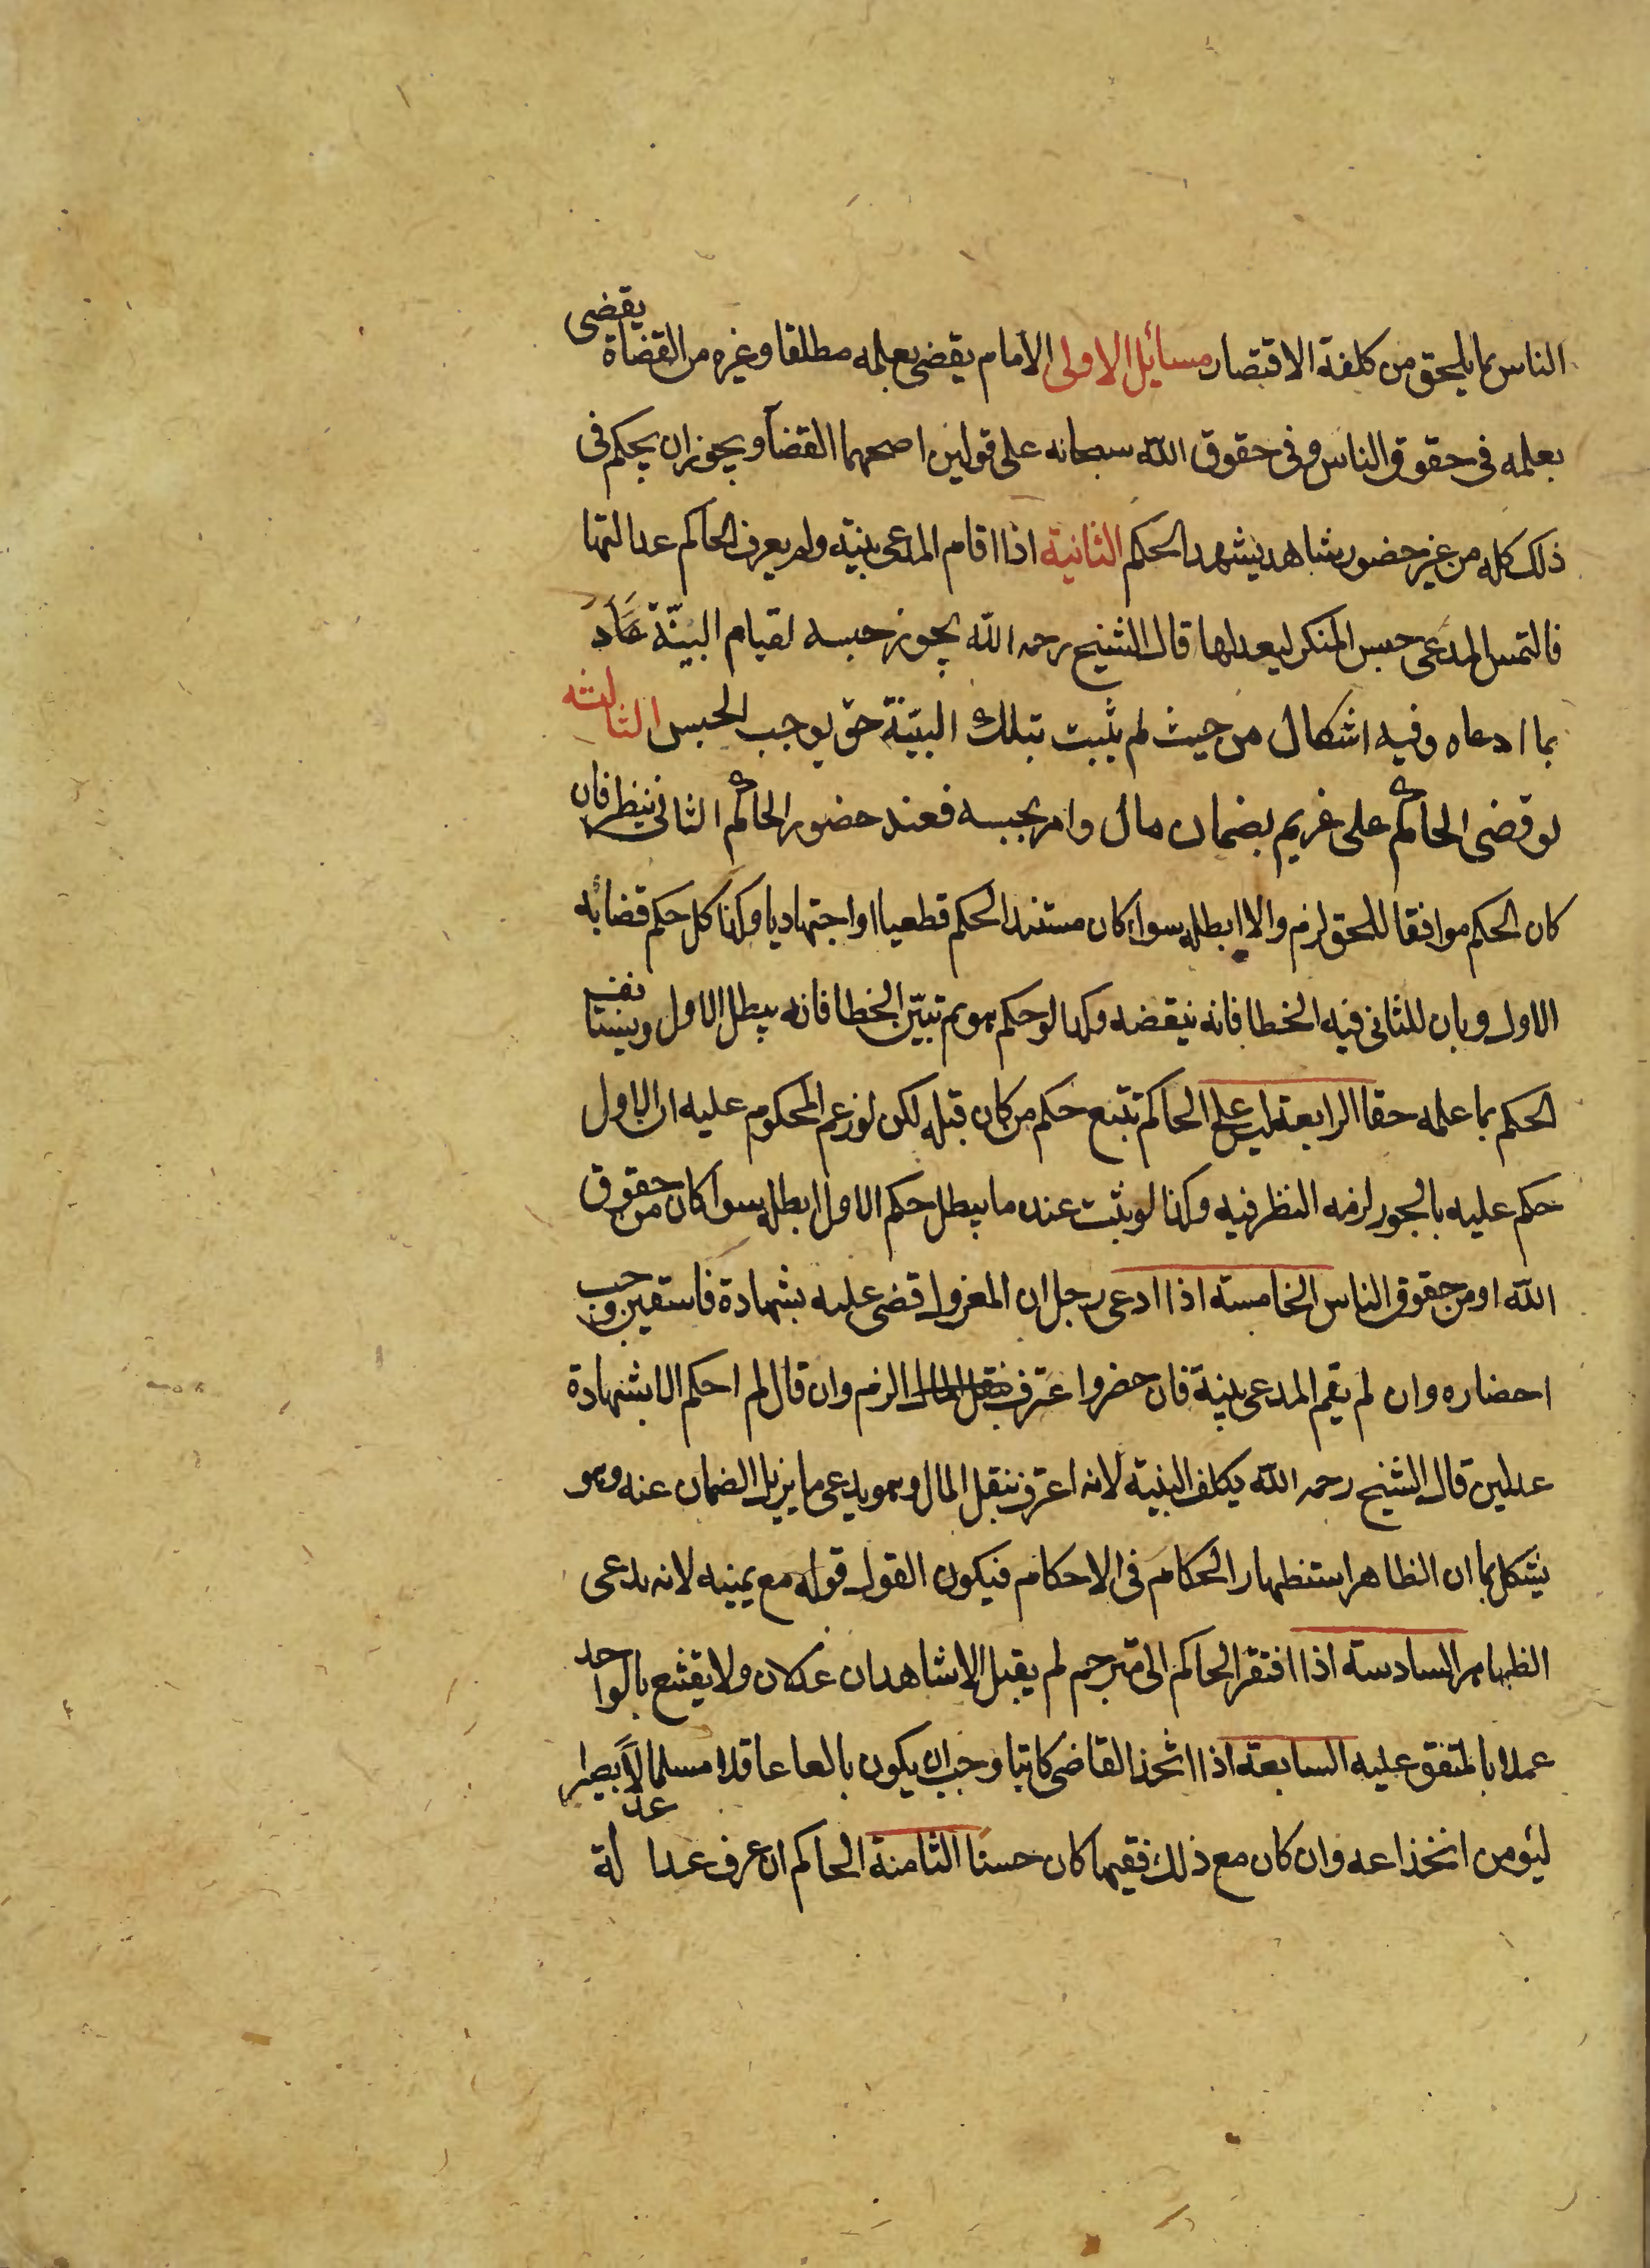 الناس بما يلحق من كلفة الاقتصار مسائل الاولى الامام يقضى بعلمه مطلقا وغيره من القضاة يقضى
بعلمه فى حقوق الناس وفى حقوق الله سبحانه على قولين اصحهما القضآ ويجوز ان يحكم فى
ذلك كله من غير حضور شاهد يشهد الحكم الثانية اذا اقام المدعى بينة ولم يعرف الحاكم عدالتها
فالتمس المدعى حبس المنكر ليعدلها قال الشيخ رحمه الله يجوز حبسه لقيام البيّنة
بما ادعاه وفيه اشكال من حيث لم يثبت بتلك البيّنة حق يوجب الحبس الثالثه
لو قضى الحاكم على غريم بضمان مال وامر بحبسه فعند حضور الحاكم الثانى ينظر فان
كان الحكم موافقا للحق لزم والا ابطله سواء كان مستند الحكم قطعيا او اجتهاديا وكذا كل حكم قضا به
الاول وبان للثانى فيه الخطا فانه ينقضه وكذا لو حكم هو ثم تبيّن الخطا فانه يبطل الاول ويستانف
الحكم بما علمه حقا الرابعة ليس على الحاكم تتبع حكم من كان قبله لكن لو زعم المحكوم عليه ان الاول
حكم عليه بالجور لزمه النظر فيه وكذا لو ثبت عنده ما يبطل حكم الاول ابطله سوا كان من حقوق
الله او من حقوق الناس الخامسة اذا ادعى رجل ان المعزول قضى عليه بشهادة فاسقين وجب
احضاره وان لم يقم المدعى بينة فان حضر واعترف الزم وان قال لم احكم الا بشهادة
عدلين قال الشيخ رحمه الله يكلف البينة لانه اعترف بنقل المال وهو يدعى ما يزيل الضمان عنه وهو
يشكل بما ان الظاهر استظهار الحكام فى الاحكام فيكون القول قوله مع يمينه لانه يدعى
الظاهر السادسة اذا افتقر الحاكم الى مترجم لم يقبل الا شاهدان عدلان ولا يقتنع بالواحد
عملا بالمتفق عليه السابعة اذا اتخذ القاضى كاتبا وجب ان يكون بالغا عاقلا مسلما عدلاً بصيرا
ليؤمن انخداعه وان كان مع ذلك فقيها كان حسنا الثامنة الحاكم ان عرف عدالة